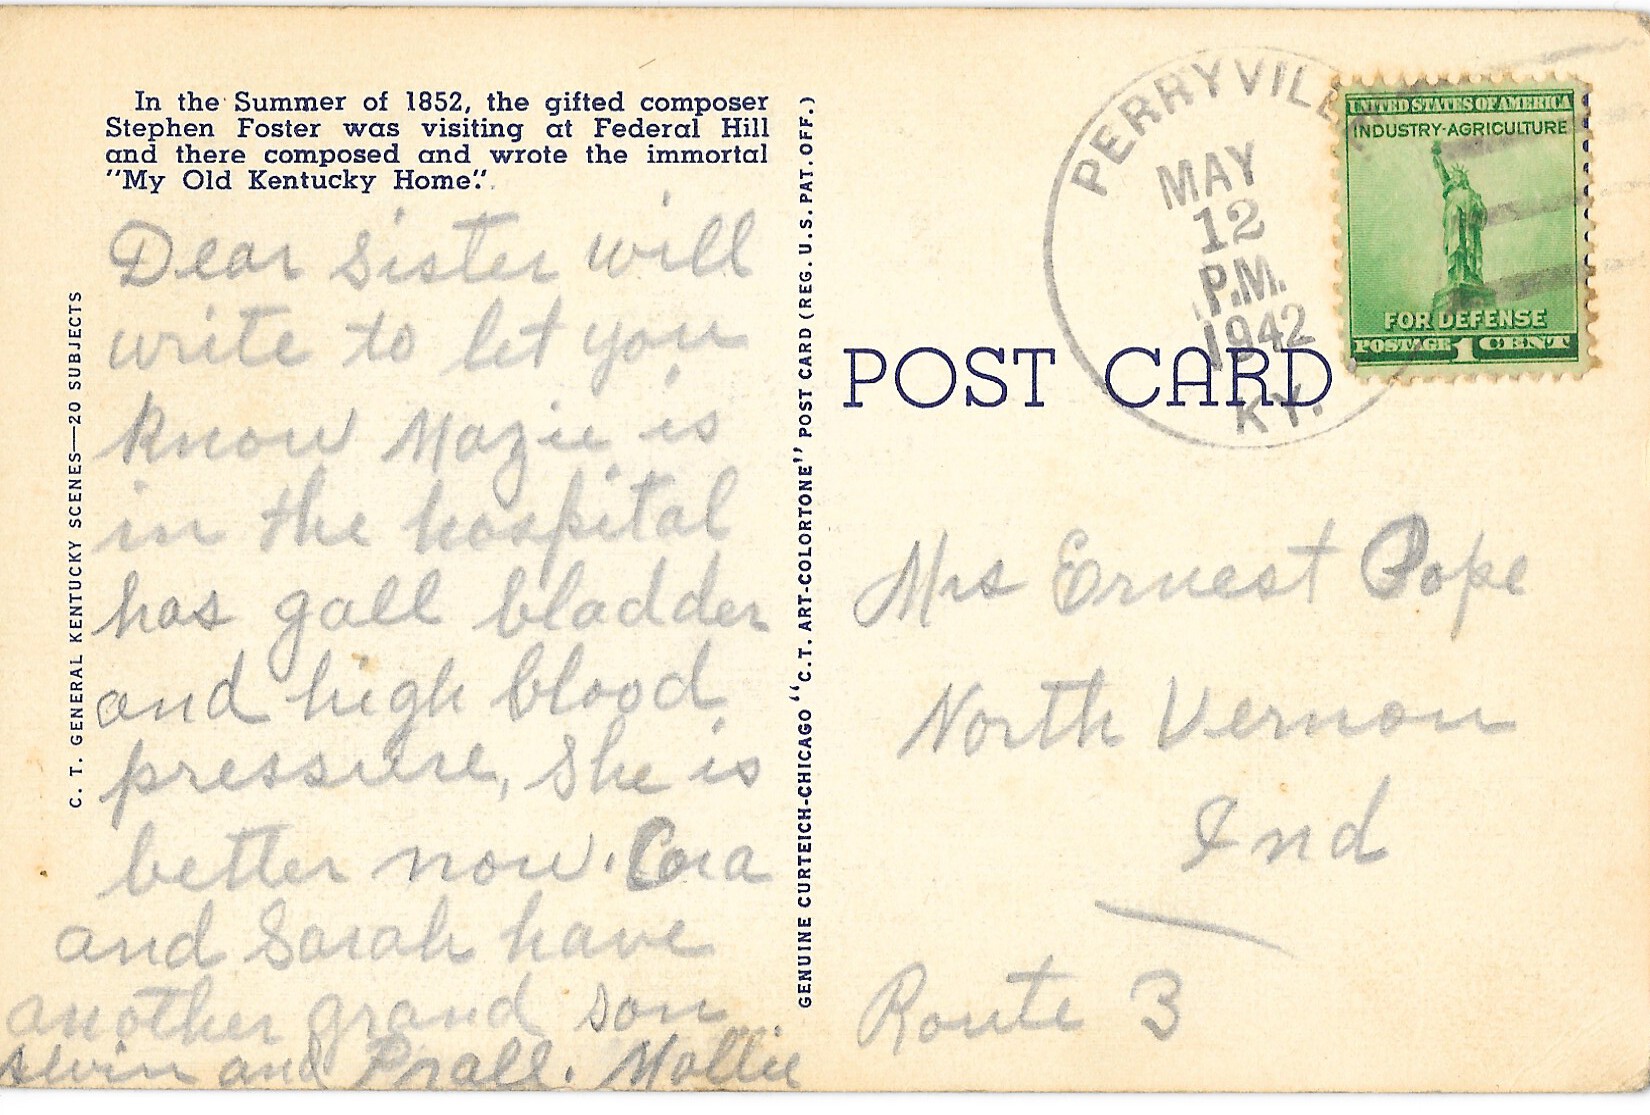 In the Summer of 1852, the gifted composer
Stephen Foster was visiting at Federal Hill
and there composed and wrote the immortal
"My Old Kentucky Home".
Dear Sister will
write to let you
know Mazie is
in the hospital
has gall bladder
and high blood
pressure, She is
better now. Cora
and Sarah have
another grand son
Alvin and Prall. Mollie
C. T. GENERAL KENTUCKY SCENES—20 SUBJECTS
GENUINE CURTEICH-CHICAGO "C.T. ART-COLORTONE" POST CARD (REG. U.S. PAT. OFF.)
POST CARD
PERRYVILLE
MAY
12
P.M.
1942
KY.
UNITED STATES OF AMERICA
INDUSTRY-AGRICULTURE
FOR DEFENSE
POSTAGE 1 CENT
Mrs Ernest Pope
North Vernon
Ind
Route 3